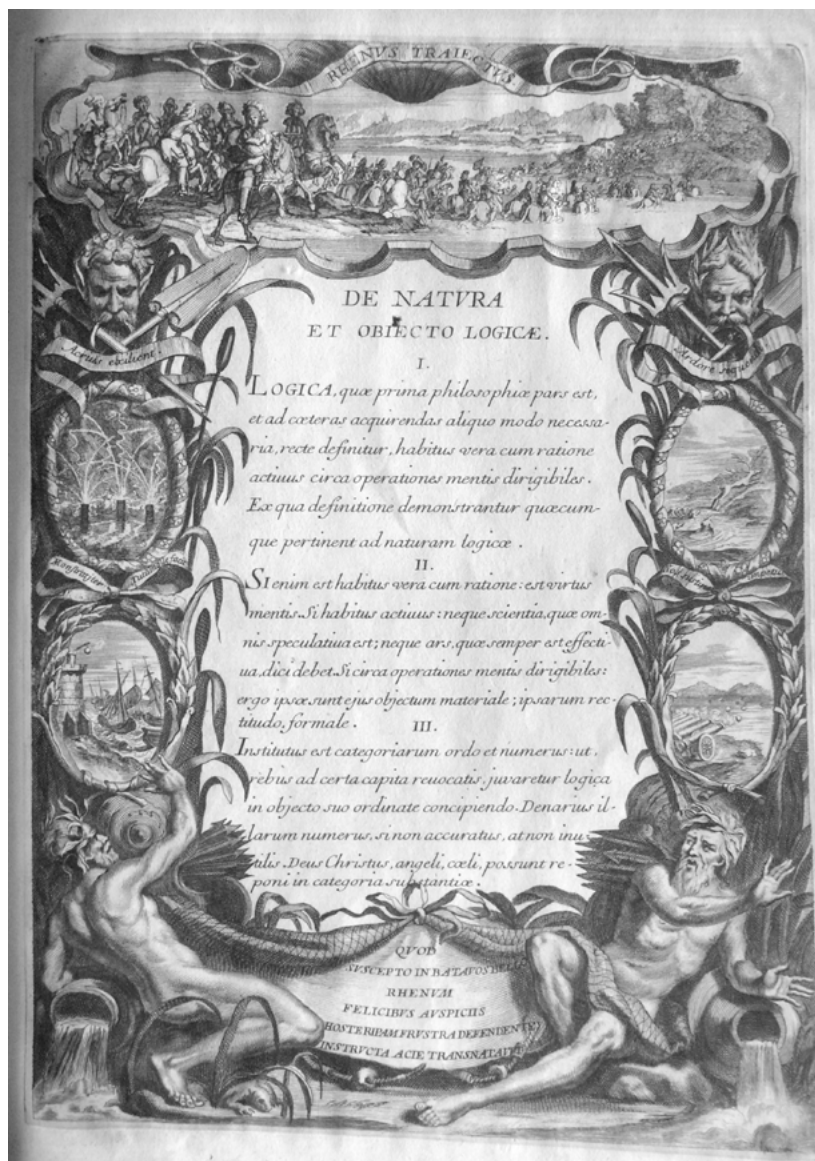 RHENVS TRAIECTVS
DE NATVRA
ET OBIECTO LOGICÆ.
Acquis exilient.
Ardore sequentur
I.
LOGICA, quæ prima philosophiæ pars est,
et ad cœteras acquirendas aliquo modo necessa-
ria, recte definitur, habitus vera cum ratione
actiuus circa operationes mentis dirigibiles.
Ex qua definitione demonstrantur quæcum-
que pertinent ad naturam logicæ.
II.
SI enim est habitus vera cum ratione: est virtus
mentis. Si habitus actiuus: neque scientia, quæ om-
nis speculatiua est; neque ars, quæ semper est effecti-
ua, dici debet. Si circa operationes mentis dirigibiles:
ergo ipsæ sunt ejus objectum materiale; ipsarum rec-
titudo, formale.
III.
Institutus est categoriarum ordo et numerus: ut,
rebus ad certa capita reuocatis, juvaretur logica
in objecto suo ordinate concipiendo. Denarius il-
larum numerus, si non accuratus, at non inu-
tilis. Deus Christus, angeli, cœli, possunt re-
poni in categoria substantiæ.
QVOD
SVSCEPTO IN BATAVOS BELLO
RHENVM
FELICIBVS AVSPICIIS
HOSTE RIPAM FRVSTRA DEFENDENTE
INSTRVCTA ACIE TRANSNATAVIT